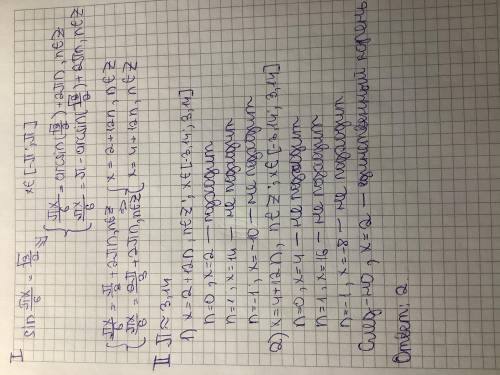 I
sin πx/6 = √3/2   x∈[-π; π]
{ πx/6 = arcsin(√3/2)+2πn, n∈Z
{ πx/6 = π - arcsin(√3/2)+2πn, n∈Z
{ πx/6 = π/3 + 2πn, n∈Z   { x = 2+12n, n∈Z
{ πx/6 = 2π/3 + 2πn, n∈Z   { x = 4+12n, n∈Z
II π ≈ 3,14
1) x=2+12n, n∈Z; x∈[-3,14; 3,14]
n=0, x=2 — подходит
n=1, x=14 — не подходит
n=-1, x=-10 — не подходит
2) x=4+12n, n∈Z; x∈[-3,14; 3,14]
n=0, x=4 — не подходит
n=1, x=16 — не подходит
n=-1, x=-8 — не подходит
След-но, x=2 — единственный корень
Ответ: 2.